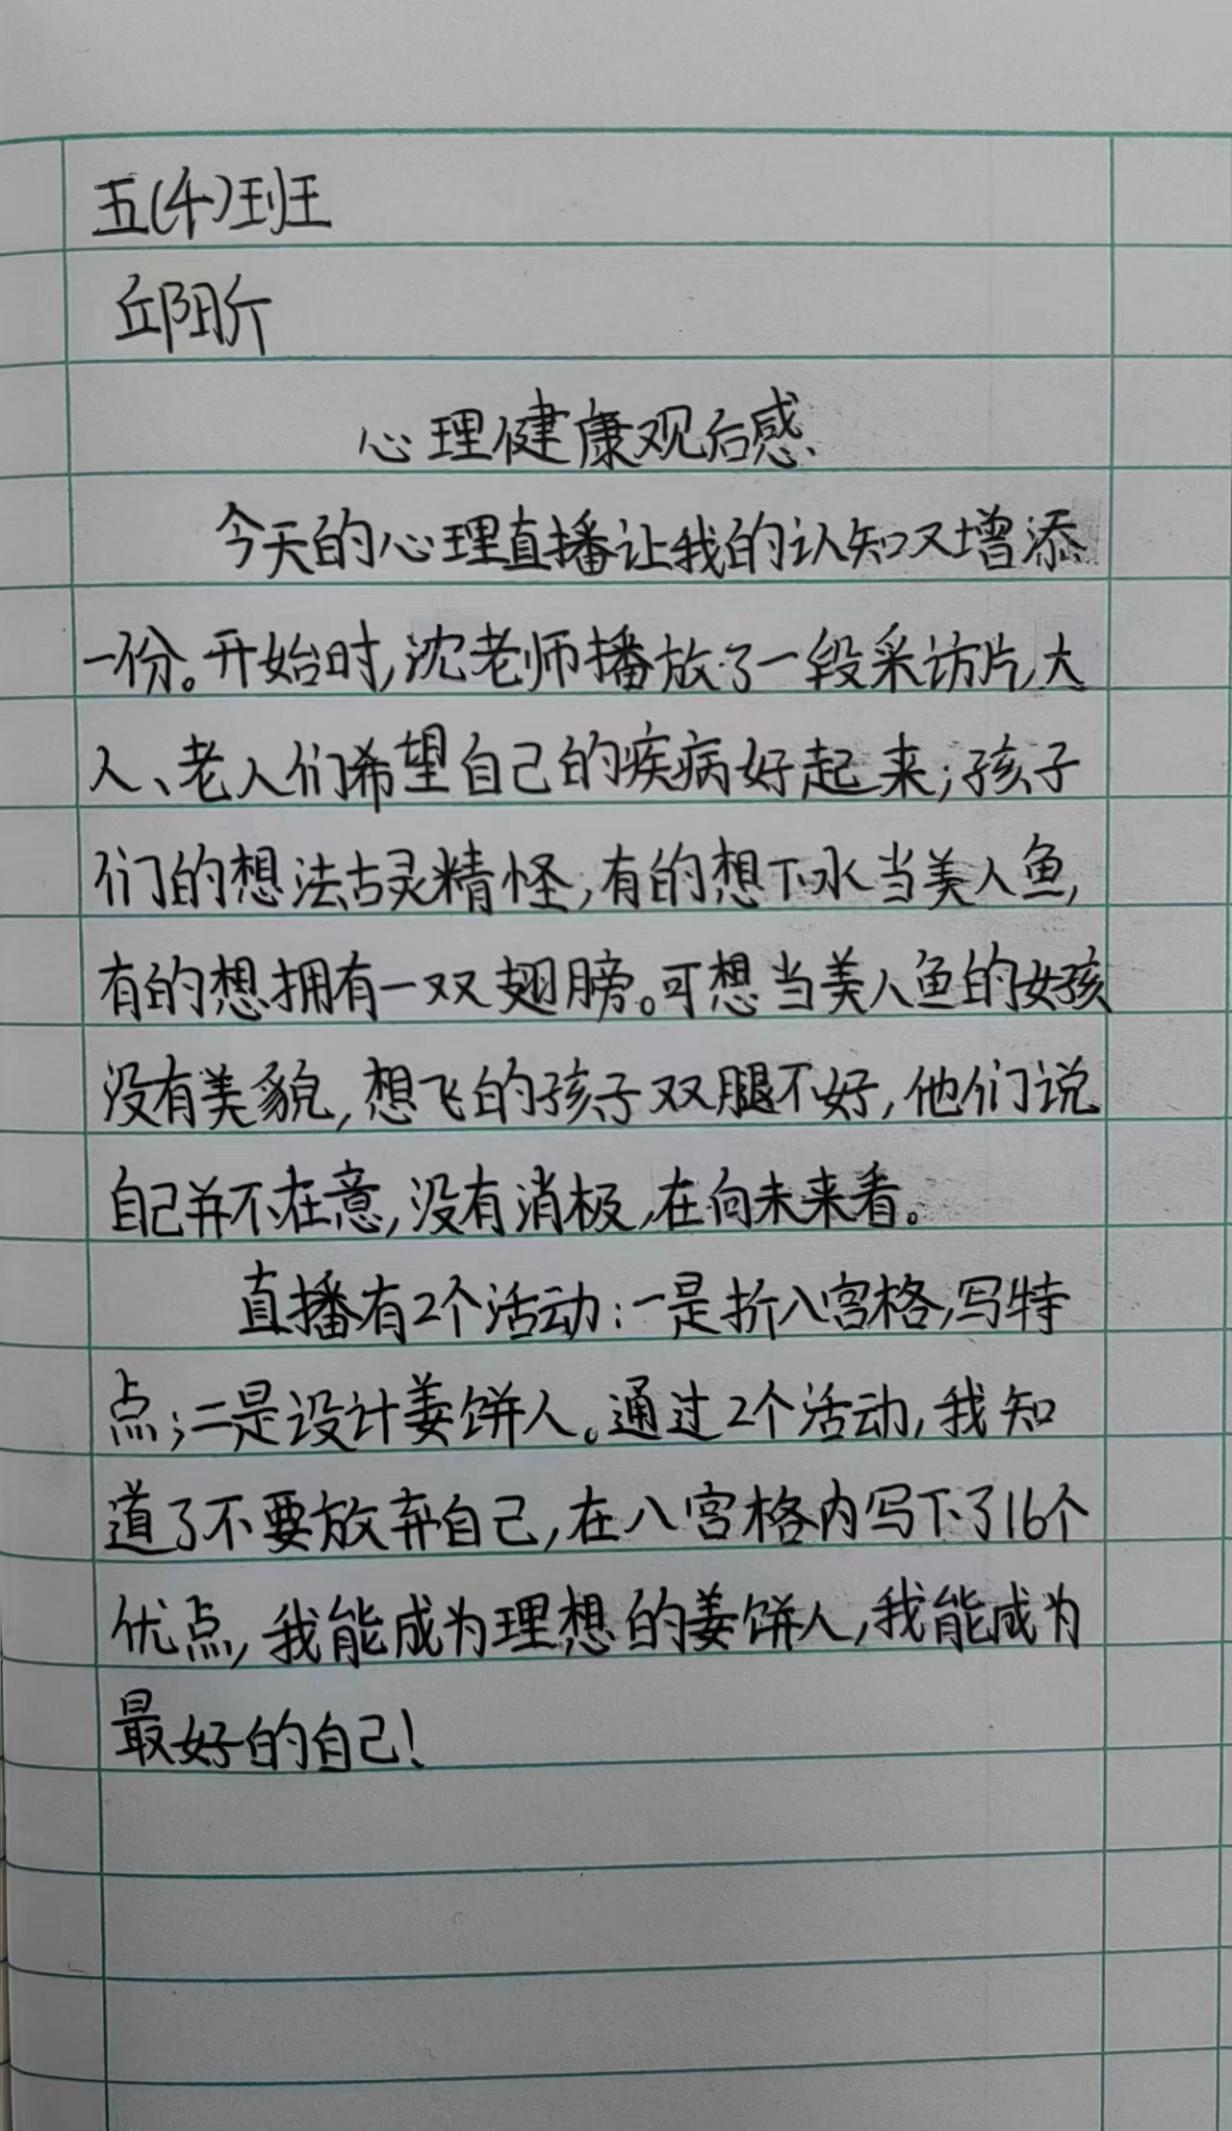 五(4)班
心理健康观后感
今天的心理直播让我的认知又增添
一份。开始时,沈老师播放了一段采访片,大
人、老人们希望自己的疾病好起来;孩子
们的想法古灵精怪,有的想下水当美人鱼,
有的想拥有一双翅膀。可想当美人鱼的女孩
没有美貌,想飞的孩子双腿不好,他们说
自己并不在意,没有消极,在向未来看。
直播有2个活动:一是折八宫格,写特
点;二是设计姜饼人。通过2个活动,我知
道了不要放弃自己,在八宫格内写下了16个
优点,我能成为理想的姜饼人,我能成为
最好的自己!